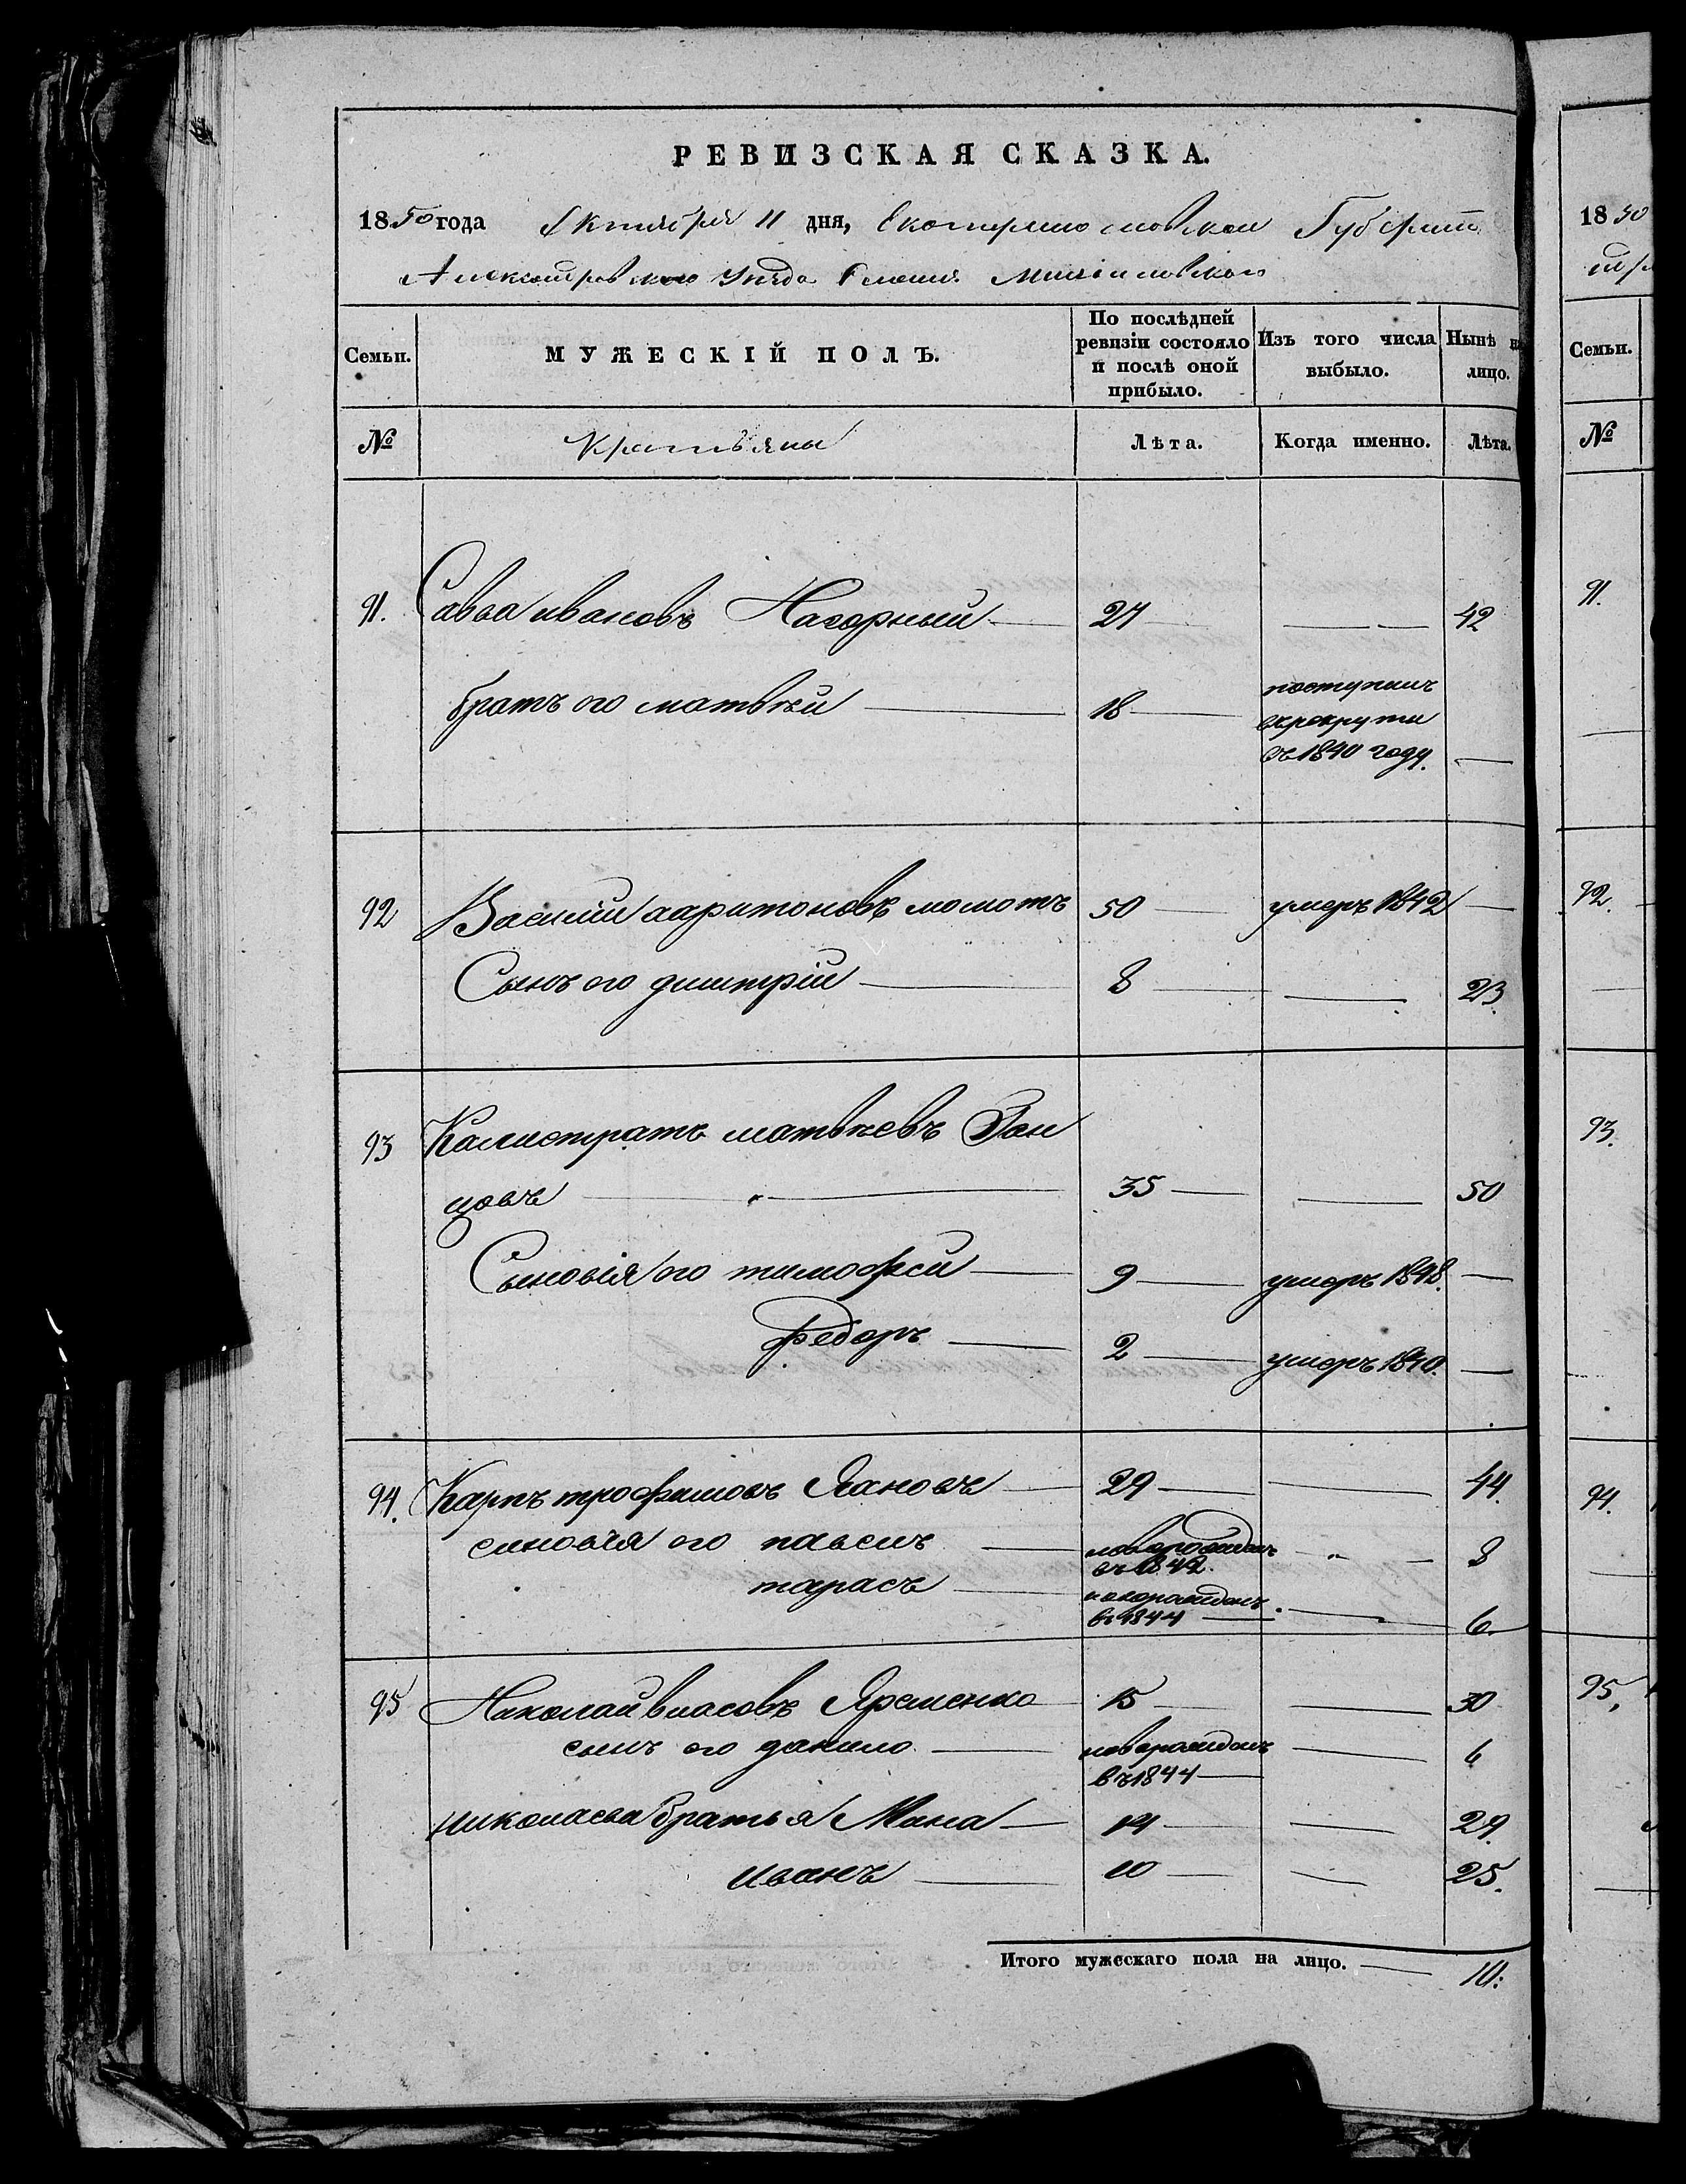 РЕВИЗСКАЯ СКАЗКА.
1850 года Октября 11 дня, Екатеринославской Губерніи
Александровского Уезда
Семьи.
МУЖЕСКІЙ ПОЛЪ.
По послѣдней ревизіи состояло и послѣ оной прибыло.
Изъ того числа выбыло.
Нынѣ на лицо.
№
Крестьяны
Лѣта.
Когда именно.
Лѣта.
91. Савва ивановъ Нагорный 27 42
братъ его матвѣй 18 поступилъ
в рекруты
въ 1840 году.
92 Василій харитоновъ момотъ 50 умеръ 1842
Сынъ его дмитрій 8 23.
93 Калистратъ матвѣевъ Зай
цовъ 35 50
Сыновія его тимофей 9 умеръ 1848.
Федоръ 2 умеръ 1840.
94. Карпъ трофимовъ 29 44.
синовія его павелъ новорожденъ въ 1842. 8
тарасъ новорожденъ въ 1844 6.
95 Николай власовъ Яременко 15 30
сынъ его данило новорожденъ
въ 1844 6
николаева братья Мина 14 29.
иванъ 10 25.
Итого мужескаго пола на лицо. 10:
1850
Семьи.
№
91.
92.
93.
94.
95.